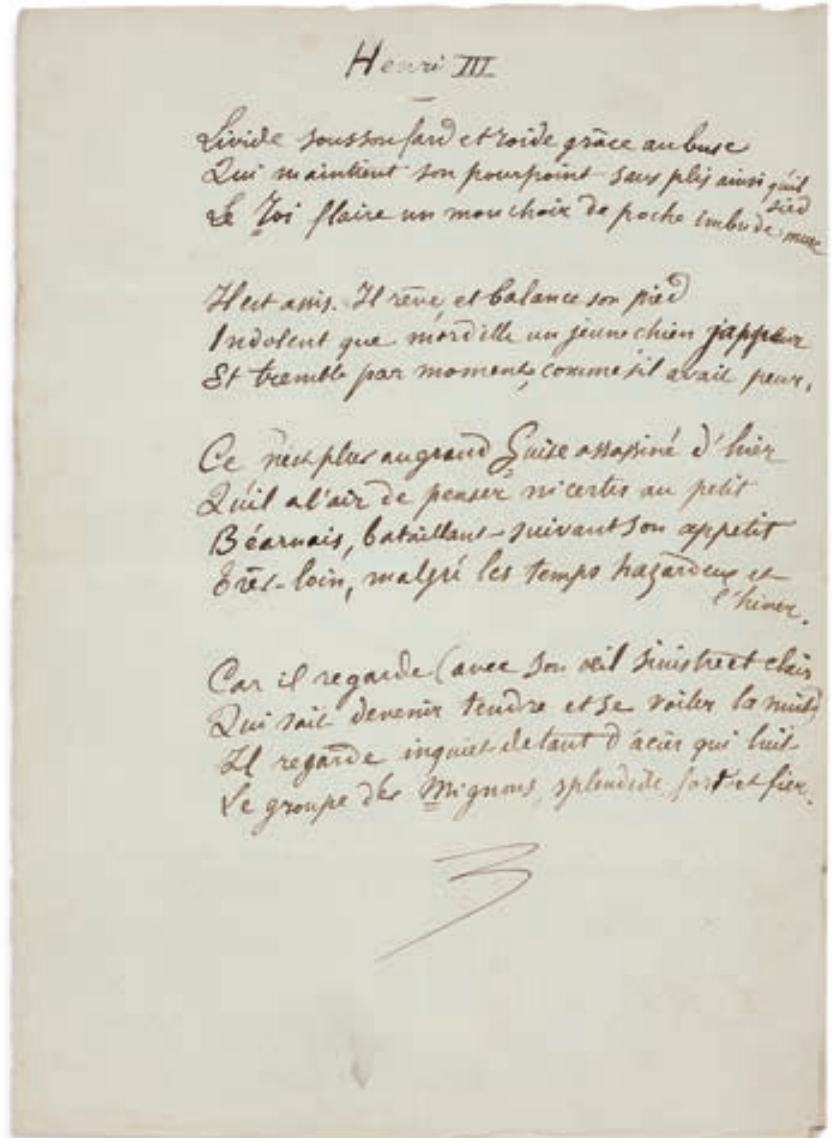 Henri III
Livide sous son fard et roide grâce au busc
Qui maintient son pourpoint sans plis ainsi qu'il
sied
Le Roi flaire un mouchoir de poche imbu de musc
Il est assis. Il rêve, et balance son pied
Indolent que mordille un jeune chien jappeur
Et tremble par moments, comme s'il avait peur.
Ce n'est plus au grand Guise assassiné d'hier
Qu'il a l'air de penser ni certes au petit
Béarnais, bataillant suivant son appétit
Très-loin, malgré les temps hazardeux et
l'hiver.
Car il regarde (avec son œil sinistre et clair
Qui sait devenir tendre et se voiler la nuit)
Il regarde inquiet de tant d'acier qui luit
Le groupe des Mignons, splendide, fort et fier.